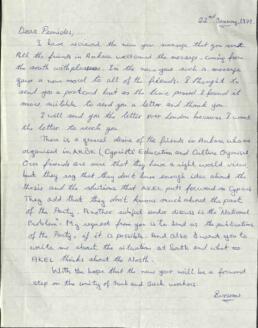 22nd January 1979
Dear Pamicles,
I have received the new year message that you sent
All the friends in Ankara welcomed the message coming from
the south with pleasure. In the new year such a message
gave a new moral to all of the friends. I thought to
send you a postcard but as the time passed I found it
more suitable to send you a letter and thank you.
I will send you the letter over London because I want
the letter to reach you.
There is a general desire of the friends in Ankara whom
organized in (Cypriot Education and Culture Organisat.
Our friends are sure that they have a right world view,
but they say that they don't have enough idea about the
thesis and the solutions that AKEL puts forward on Cyprus
They add that they don't know much about the past
of the Party. Another subject under discuss is the National
Problem. My request from you is to send us the publications
of the Party, if it is possible. And also I want you to
write me about the situation at South and what
AKEL thinks about the North.
With the hope that the new year will be a forward
step on the unity of Turk and Greek workers.